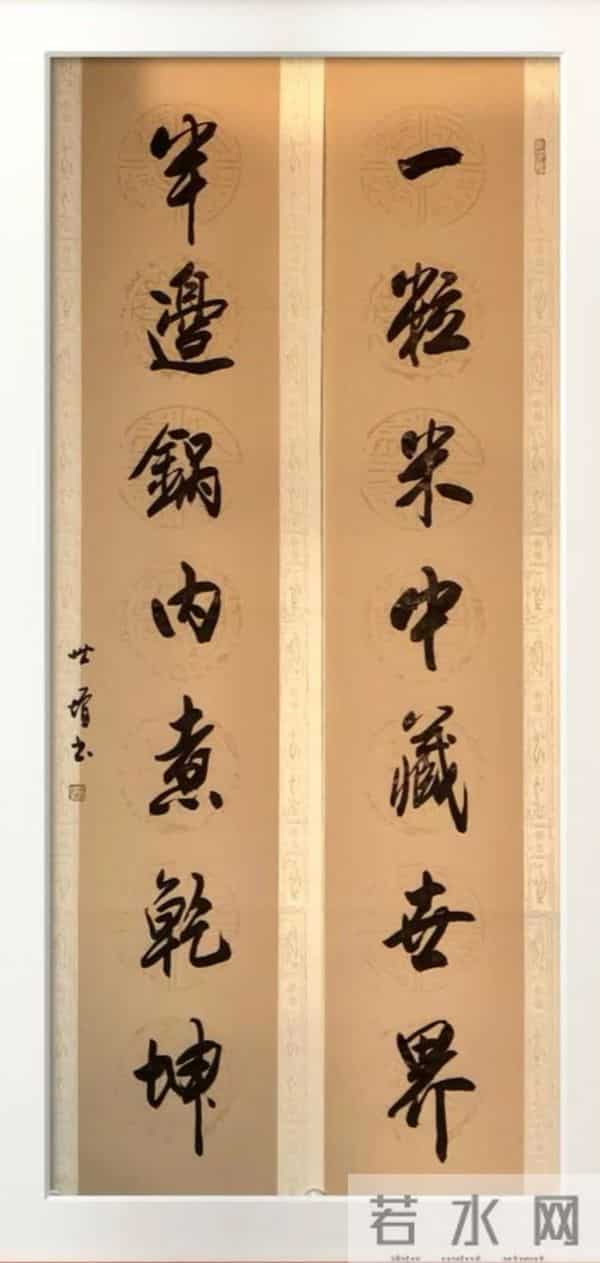 一粒米中藏世界
半邊鍋内煮乾坤
若水网